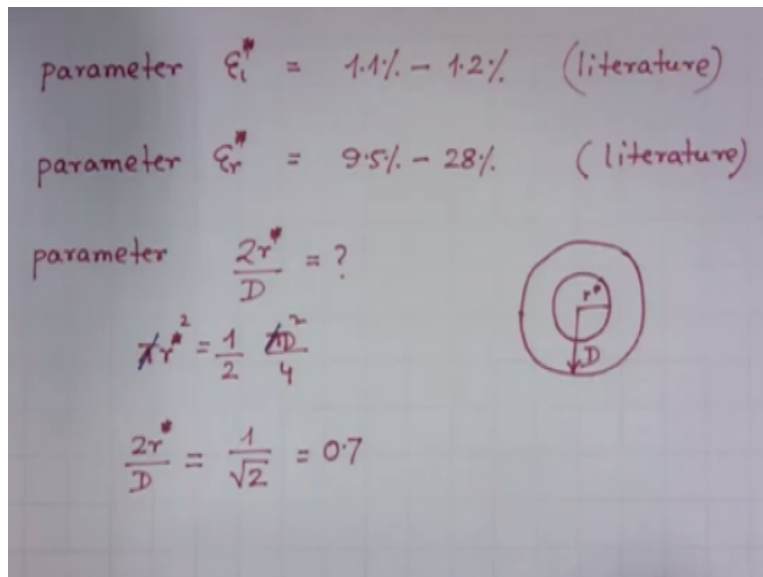 parameter ε₁* = 1.1% - 1.2% (literature)
parameter εᵣ* = 9.5% - 28% (literature)
parameter 2r*/D = ?
πr*² = 1/2 πD²/4
r*
D
2r*/D = 1/√2 = 0.7